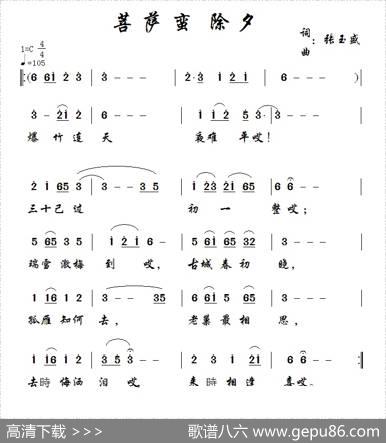 菩萨蛮除夕
1=C 4/4
♩=105
词
曲：张玉盛
‖:(6 6i 2 3 | 3 - - - | 2· 3 i 2 i | 6 - - -)|
3 - 2i 2 | 6 - - - | i i 2 5 3 | 3 - - - |
爆竹连天 夜难平哎！
2 i 65 3 | 3 - - 35 | i 23 2i 65 | 6 6 - - |
三十已过 初一整哎；
5 65 3 5 | i 2 i 6 - | 5 6i 65 32 | 3 - - - |
瑞雪激梅到哎，古城春初晚，
1 16 1 2 | 3 - - 35 | i i6 i 65 | 3 - - - |
孤雁知何去，老巢最相思，
i i6 5 i 2 | 3 5 3 - | 2 3 2 i | 6 6 - - :‖
去時悔洒泪哎 来時相逢喜哎。
高清下载 >>> 歌谱八六 www.gepu86.com